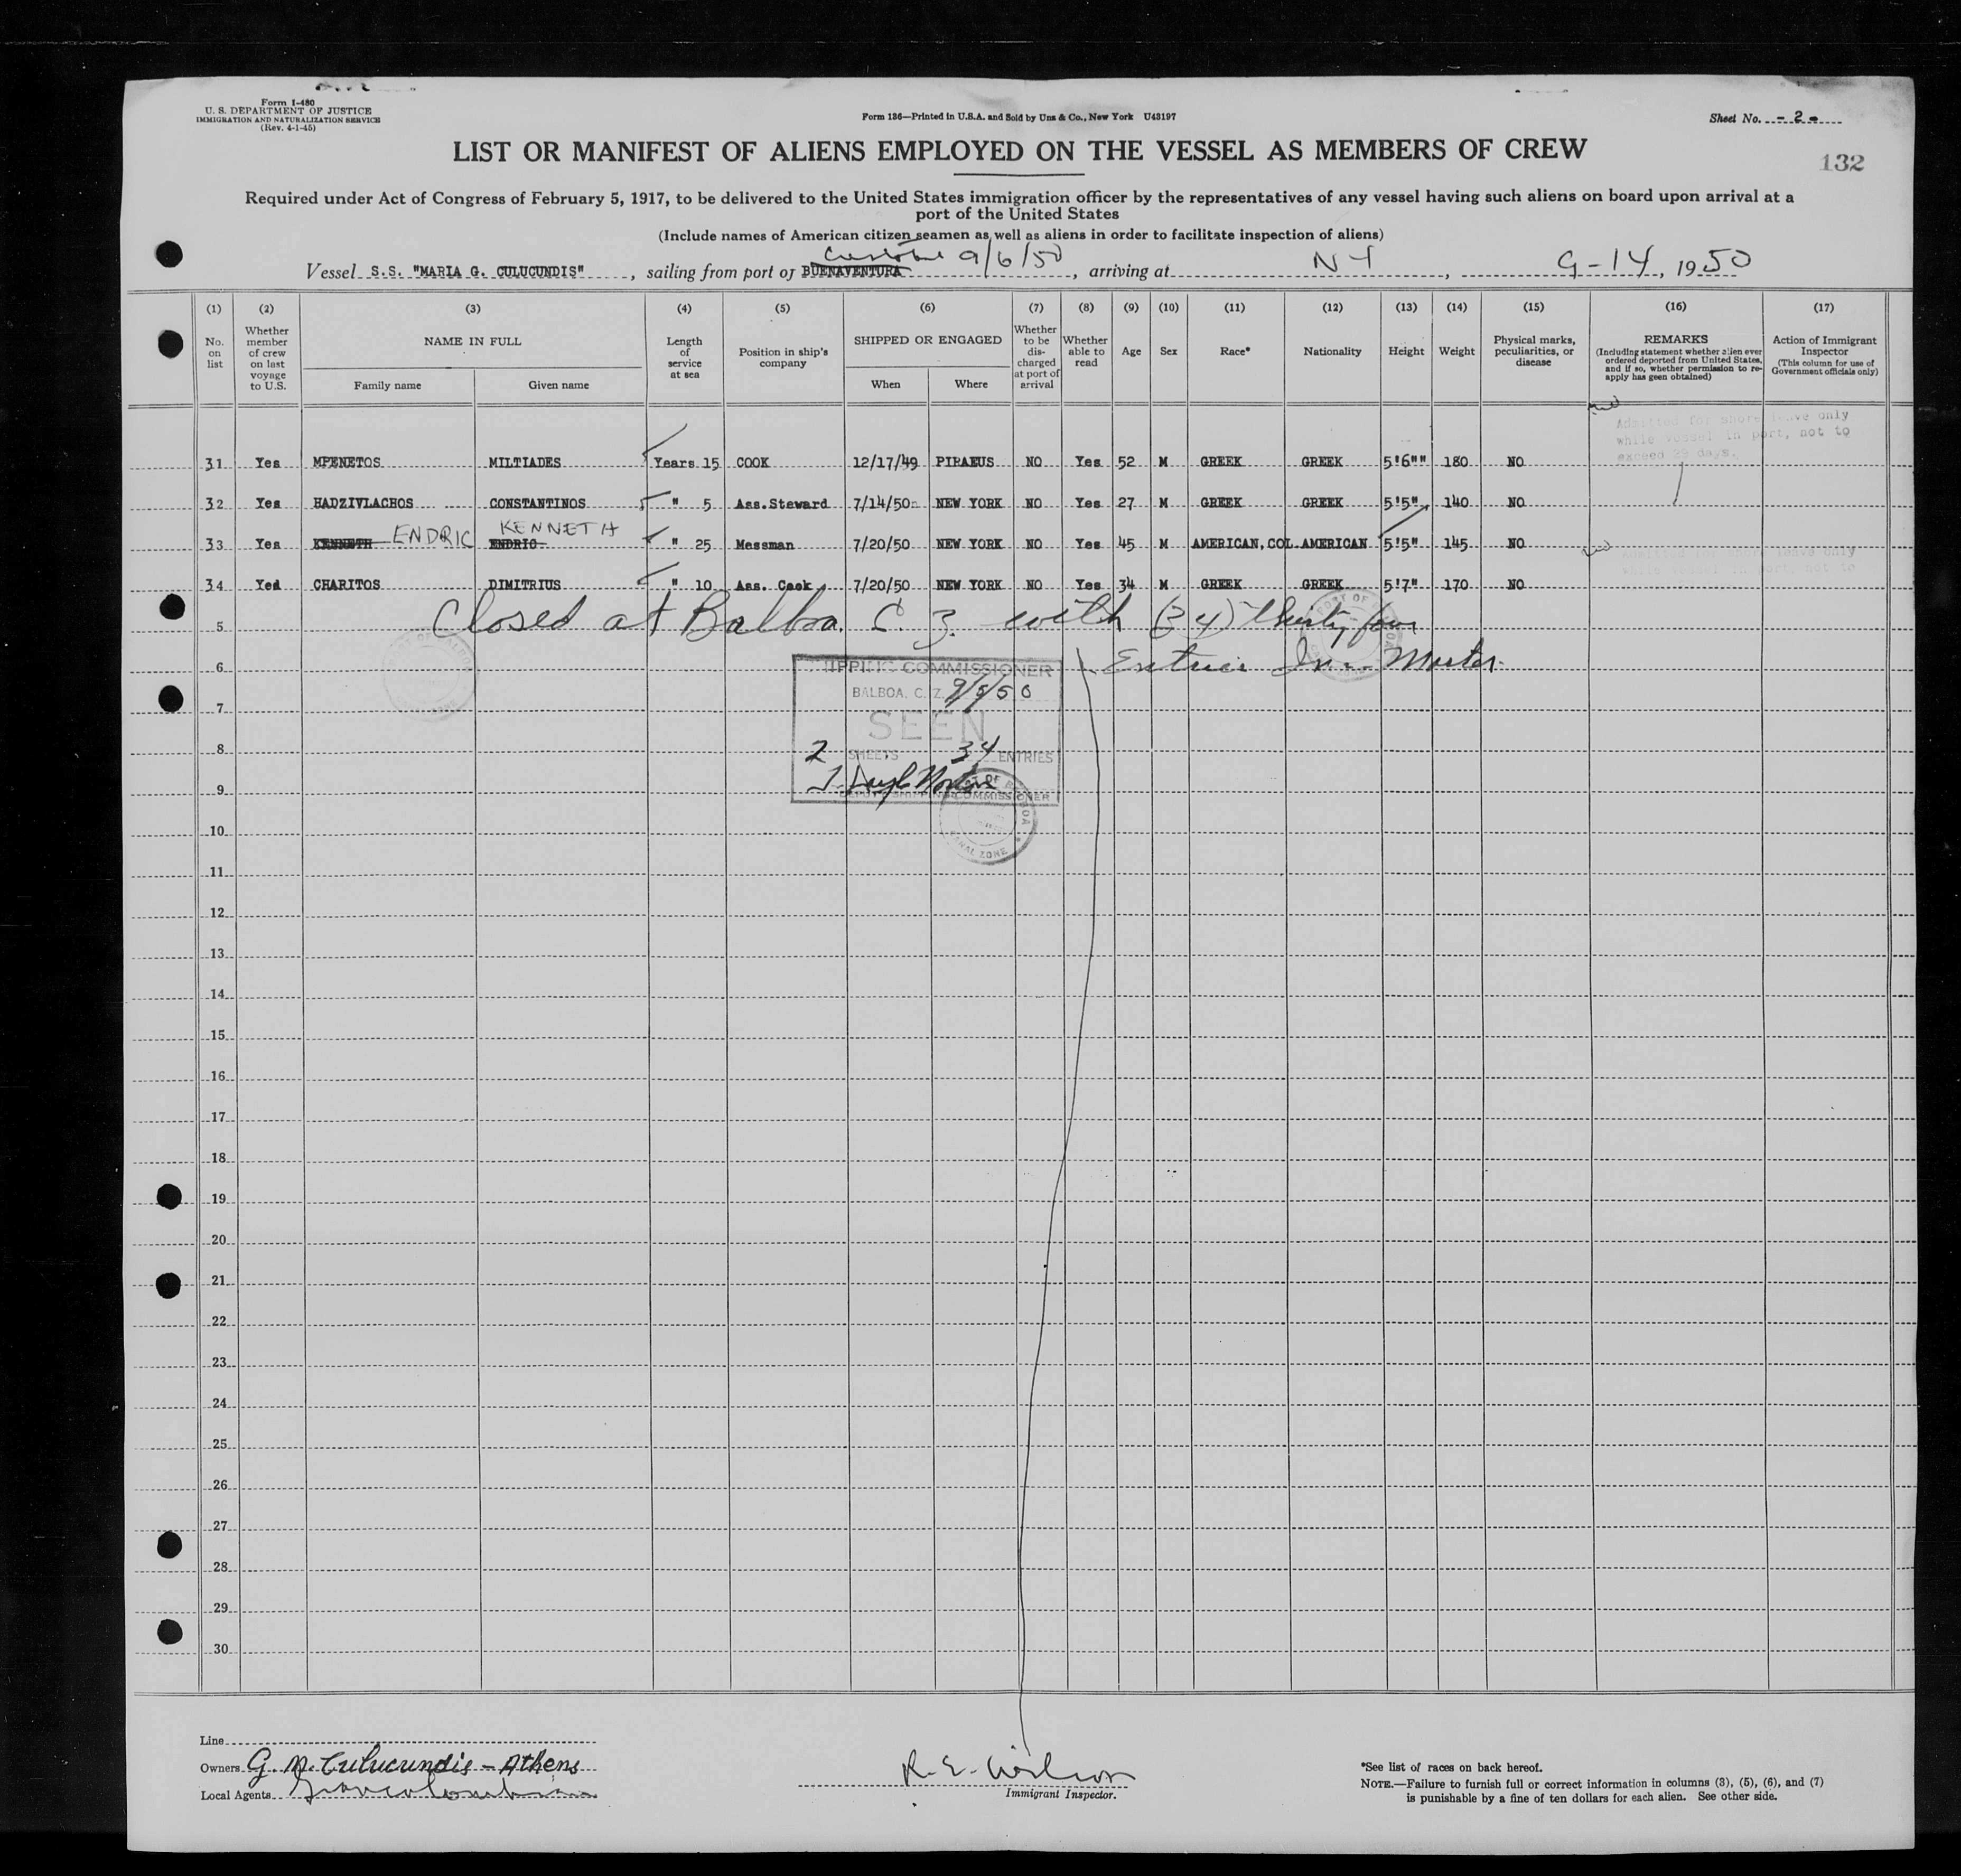 Form I-480
U. S. DEPARTMENT OF JUSTICE
IMMIGRATION AND NATURALIZATION SERVICE
(Rev. 4-1-45)
Form 136—Printed in U.S.A. and Sold by Unz & Co., New York U43197
Sheet No. - 2 -
LIST OR MANIFEST OF ALIENS EMPLOYED ON THE VESSEL AS MEMBERS OF CREW
132
Required under Act of Congress of February 5, 1917, to be delivered to the United States immigration officer by the representatives of any vessel having such aliens on board upon arrival at a
port of the United States
(Include names of American citizen seamen as well as aliens in order to facilitate inspection of aliens)
Cristobal 9/6/50
Vessel S.S. "MARIA G. CULUCUNDIS", sailing from port of BUENAVENTURA, arriving at N Y, 9-14, 1950
(1) (2) (3) (4) (5) (6) (7) (8) (9) (10) (11) (12) (13) (14) (15) (16) (17)
No. on list
Whether member of crew on last voyage to U.S.
NAME IN FULL
Family name
Given name
Length of service at sea
Position in ship's company
SHIPPED OR ENGAGED
When
Where
Whether to be discharged at port of arrival
Whether able to read
Age
Sex
Race*
Nationality
Height
Weight
Physical marks, peculiarities, or disease
REMARKS
(Including statement whether alien ever ordered deported from United States, and if so, whether permission to re-apply has geen obtained)
Action of Immigrant Inspector
(This column for use of Government officials only)
Admitted for shore leave only
while vessel in port, not to
exceed 29 days.
31 Yes MPENETOS MILTIADES Years 15 COOK 12/17/49 PIRAEUS NO Yes 52 M GREEK GREEK 5'6"" 180 NO
32 Yes HADZIVLACHOS CONSTANTINOS " 5 Ass.Steward 7/14/50 NEW YORK NO Yes 27 M GREEK GREEK 5'5" 140 NO
ENDRIC KENNETH
33 Yes KENNETH ENDRIC " 25 Messman 7/20/50 NEW YORK NO Yes 45 M AMERICAN,COL.AMERICAN 5'5" 145 NO
Admitted for shore leave only
while vessel in port, not to
34 Yed CHARITOS DIMITRIUS " 10 Ass. Cook 7/20/50 NEW YORK NO Yes 34 M GREEK GREEK 5'7" 170 NO
Closed at Balboa, C. Z. with (34) thirty four
5
Entries Inc. Master.
6
SHIPPING COMMISSIONER
BALBOA, C. Z. 9/5/50
7
SEEN
8
2 SHEETS 34 ENTRIES
9
DEPUTY SHIPPING COMMISSIONER
PORT OF BALBOA
CANAL ZONE
10
11
12
13
14
15
16
17
18
19
20
21
22
23
24
25
26
27
28
29
30
Line
Owners G. M. Culucundis - Athens
Local Agents
R. E. Wilson
Immigrant Inspector.
*See list of races on back hereof.
NOTE.—Failure to furnish full or correct information in columns (3), (5), (6), and (7)
is punishable by a fine of ten dollars for each alien. See other side.